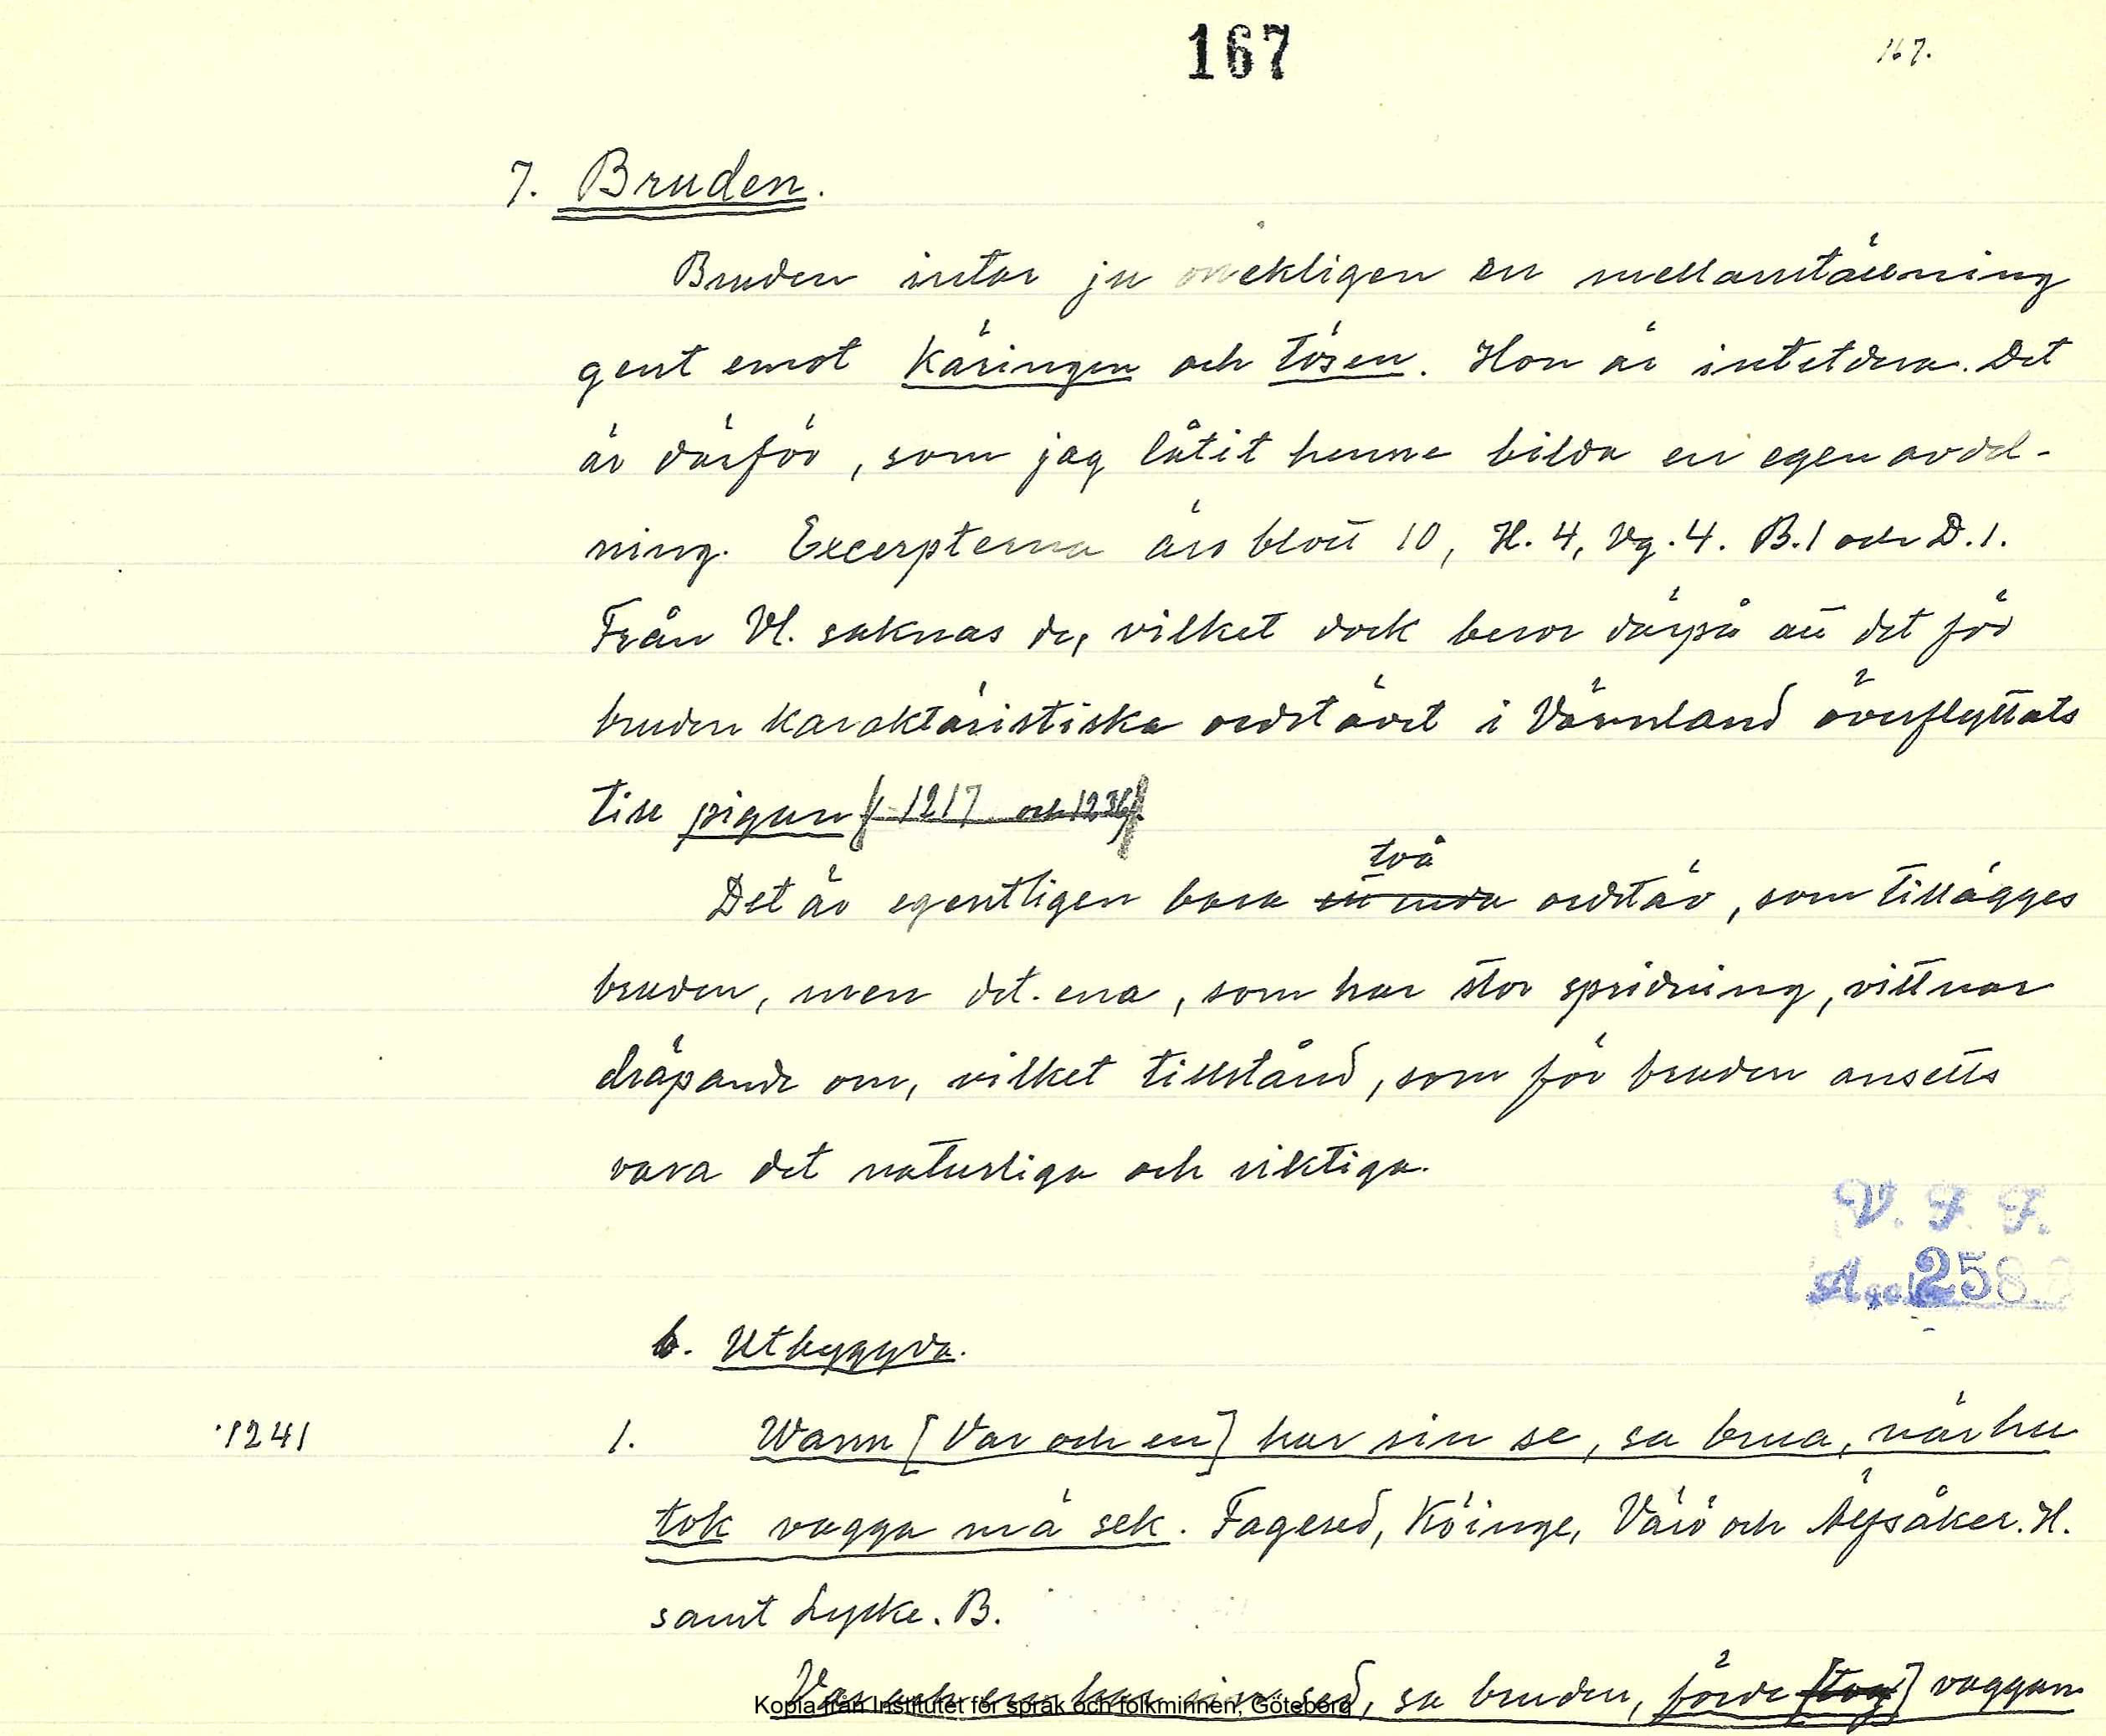 167
167.
7. Bruden.
Bruden intar ju onekligen en mellanställning
gent emot käringen och tösen. Hon är intetdera. Det
är därför, som jag låtit henne bilda en egen avdel-
ning. Excerpterna äro blott 10, H. 4, Vg. 4. B. 1 och D. 1.
Från Vl. saknas de, vilket dock beror därpå att det för
bruden karaktäristiska ordstävet i Värmland överflyttats
till pigan (1217 och 1236).
två
Det är egentligen bara ett enda ordstäv, som tillägges
bruden, men det ena, som har stor spridning, vittnar
dräpande om, vilket tillstånd, som för bruden ansetts
vara det naturliga och riktiga.
V. F. F.
Acc. 258
b. Utbyggda.
1241 1. Wann [Var och en] har sin se, sa brua, när hu
tok vagga mä sek. Fagered, Köinge, Värö och Älvsåker. H.
samt Lycke. B.
Var och en har sin sed, sa bruden, förde [tog] vaggan
Kopia från Institutet för språk och folkminnen, Göteborg